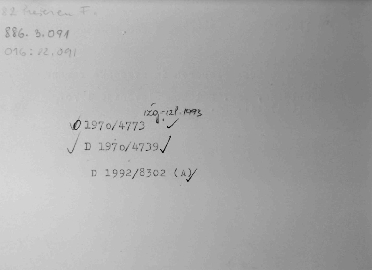 886.3.091
016:12.091
izg. insp. 1993
D 1970/4773 ✓
✓ D 1970/4739 ✓
D 1992/8302 (A) ✓